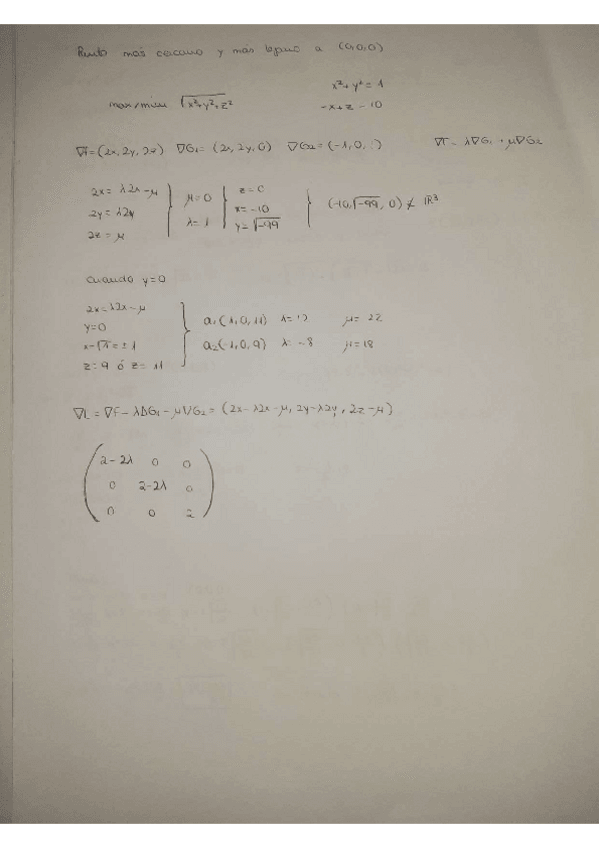 Punto más cercano y más lejano a (0,0,0)
max/min √x²+y²+z²   x²+y²=1
-x+z=10
∇f=(2x, 2y, 2z)  ∇G₁=(2x, 2y, 0)  ∇G₂=(-1, 0, 1)  ∇f = λ∇G₁ + μ∇G₂
2x = λ2x-μ
2y = λ2y
2z = μ
μ=0
λ=1
z=0
x=-10
y=√-99
(-10, √-99, 0) ∉ ℝ³
cuando y=0
2x=λ2x-μ
y=0
x=√1=±1
z=9 ó z=11
a₁(1, 0, 11)  λ=12  μ=22
a₂(-1, 0, 9)  λ=-8  μ=18
∇L = ∇f-λ∆G₁-μ∇G₂ = (2x-λ2x-μ, 2y-λ2y, 2z-μ)
2-2λ 0 0
0 2-2λ 0
0 0 2